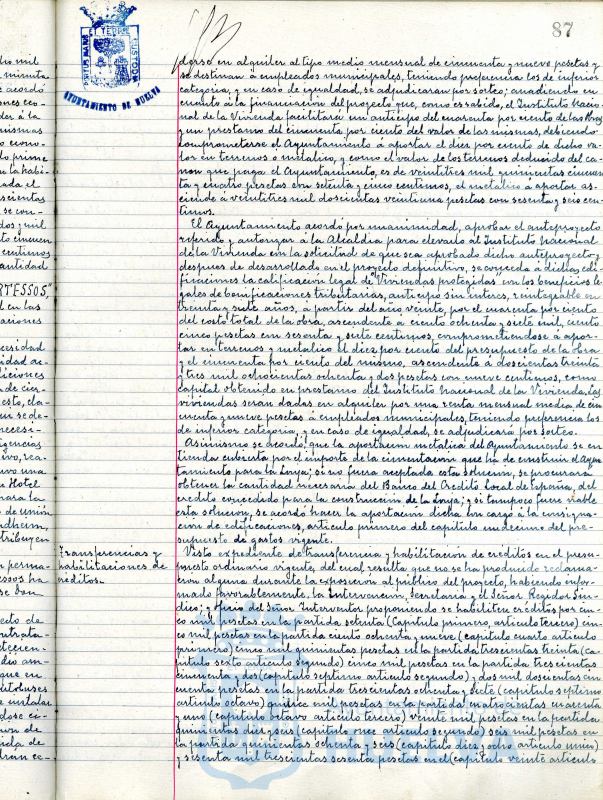 87
PORTUS MARIS ET TERRE CUSTODIA
AYUNTAMIENTO DE HUELVA
derse en alquiler al tipo medio mensual de cincuenta y nueve pesetas y
se destinan a empleados municipales, teniendo preferencia los de inferior
categoria, y en caso de igualdad, se adjudicaran por sorteo; anadiendo en
cuanto á la financiacion del proyecto que, como es sabido, el Instituto Nacio-
nal de la Vivienda facilitará un anticipo del cuarenta por ciento de las obras
y un prestamo del cincuenta por ciento del valor de las mismas, debiendo
comprometerse el Ayuntamiento á aportar el diez por ciento de dicho va-
lor en terrenos o metalico, y como el valor de los terrenos deducido del ca-
non que paga el Ayuntamiento, es de veintitres mil quinientas cincuen-
ta y cuatro pesetas con setenta y cinco centimos, el metalico á aportar as-
ciende á veintitres mil doscientas veintiuna pesetas con sesenta y seis cen-
timos.
El Ayuntamiento acordó por unanimidad, aprobar el anteproyecto
referido y autorizar á la Alcaldia para elevarlo al Instituto Nacional
de la Vivienda con la solicitud de que sea aprobado dicho anteproyecto y
despues de desarrollado en el proyecto definitivo, se conceda á dichas edi-
ficaciones la calificacion legal de Viviendas protegidas con los beneficios le-
gales de bonificaciones tributarias, anticipo sin interes, reintegrable en
treinta y siete años, á partir del año veinte, por el cuarenta por ciento
del costo total de la obra, ascendente á ciento ochenta y siete mil, ciento
cinco pesetas con sesenta y siete centimos, comprometiendose á apor-
tar en terrenos o metalico el diez por ciento del presupuesto de la obra
y el cincuenta por ciento del mismo, ascendente á doscientas treinta
y tres mil ochocientas ochenta y dos pesetas con nueve centimos, como
capital obtenido en prestamo del Instituto Nacional de la Vivienda. Las
viviendas serán dadas en alquiler por una renta mensual media, de cin-
cuenta y nueve pesetas á empleados municipales, teniendo preferencia los
de inferior categoria, y en caso de igualdad, se adjudicará por sorteo.
Asimismo se acordó, que la aportacion metalica del Ayuntamiento se en-
tienda cubierta por el importe de la cimentacion que ha de construir el Ayun-
tamiento para la Lonja; si no fuera aceptada esta solucion, se procurará
obtener la cantidad necesaria del Banco del Credito Local de España, del
credito concedido para la construccion de la Lonja; y si tampoco fuere viable
esta solucion, se acordó hacer la aportacion dicha con cargo á la consigna-
cion de edificaciones, articulo primero del capitulo undecimo del pre-
supuesto de gastos vigente.
Transferencias y
habilitaciones de
créditos.-
Visto expediente de transferencia y habilitacion de créditos en el presu-
puesto ordinario vigente, del cual resulta que no se ha producido reclama-
cion alguna durante la exposicion al público del proyecto, habiendo infor-
mado favorablemente, la Intervencion, Secretaria y el Señor Regidor Sin-
dico; y oficio del Señor Interventor proponiendo se habiliten créditos por cin-
co mil pesetas en la partida setenta (capitulo primero, articulo tercero) cin-
co mil pesetas en la partida ciento ochenta y nueve (capitulo cuarto articulo
primero) cinco mil quinientas pesetas en la partida trescientas treinta (ca-
pitulo sexto articulo segundo) cinco mil pesetas en la partida trescientas
cincuenta y dos (capitulo septimo articulo segundo) y dos mil doscientas cin-
cuenta pesetas en la partida trescientas ochenta y siete (capitulo septimo
articulo octavo) quince mil pesetas en la partida cuatrocientas cuarenta
y una (capitulo octavo articulo tercero) veinte mil pesetas en la partida
quinientas diez y seis (capitulo once articulo segundo) seis mil pesetas en
la partida quinientas ochenta y seis (capitulo diez y ocho articulo unico)
y sesenta mil trescientas sesenta pesetas en el (capitulo veinte articulo